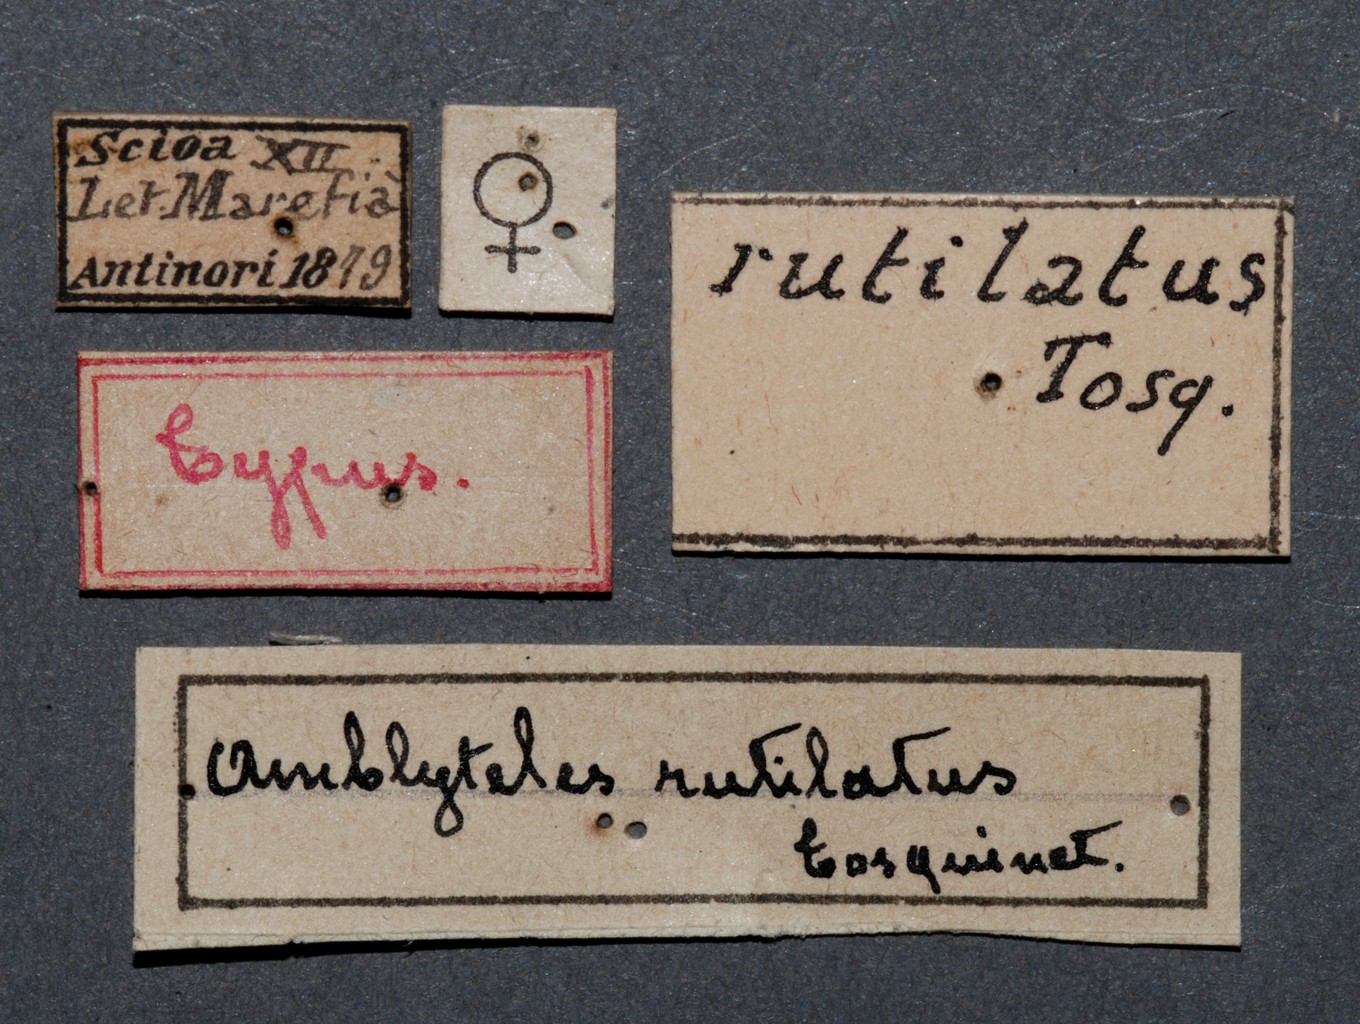 Scioa XII
Let. Marefià
Antinori 1879
♀
rutilatus
Tosq.
Typus.
Amblyteles rutilatus
Tosquinet.